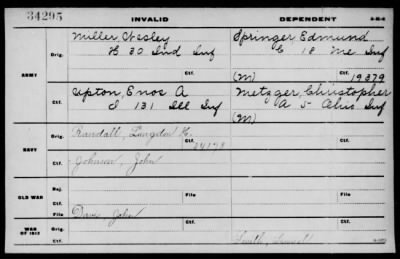 34295
INVALID
DEPENDENT
ARMY
Orig.
Miller, Wesley
H 30 Ind Inf
Springer Edmund
C 18 Me Inf
(M)
Ctf.
19379
Ctf.
Upton, Enos A
I 131 Ill Inf
Metzger, Christopher
A 5 Ohio Inf
(M)
NAVY
Orig.
Randall, Langdon H.
24178
Ctf.
Johnson, John
OLD WAR
Orig.
File
Ctf.
File
Ctf.
File
Dave, John
WAR OF 1812
Orig.
Ctf.
Smith,